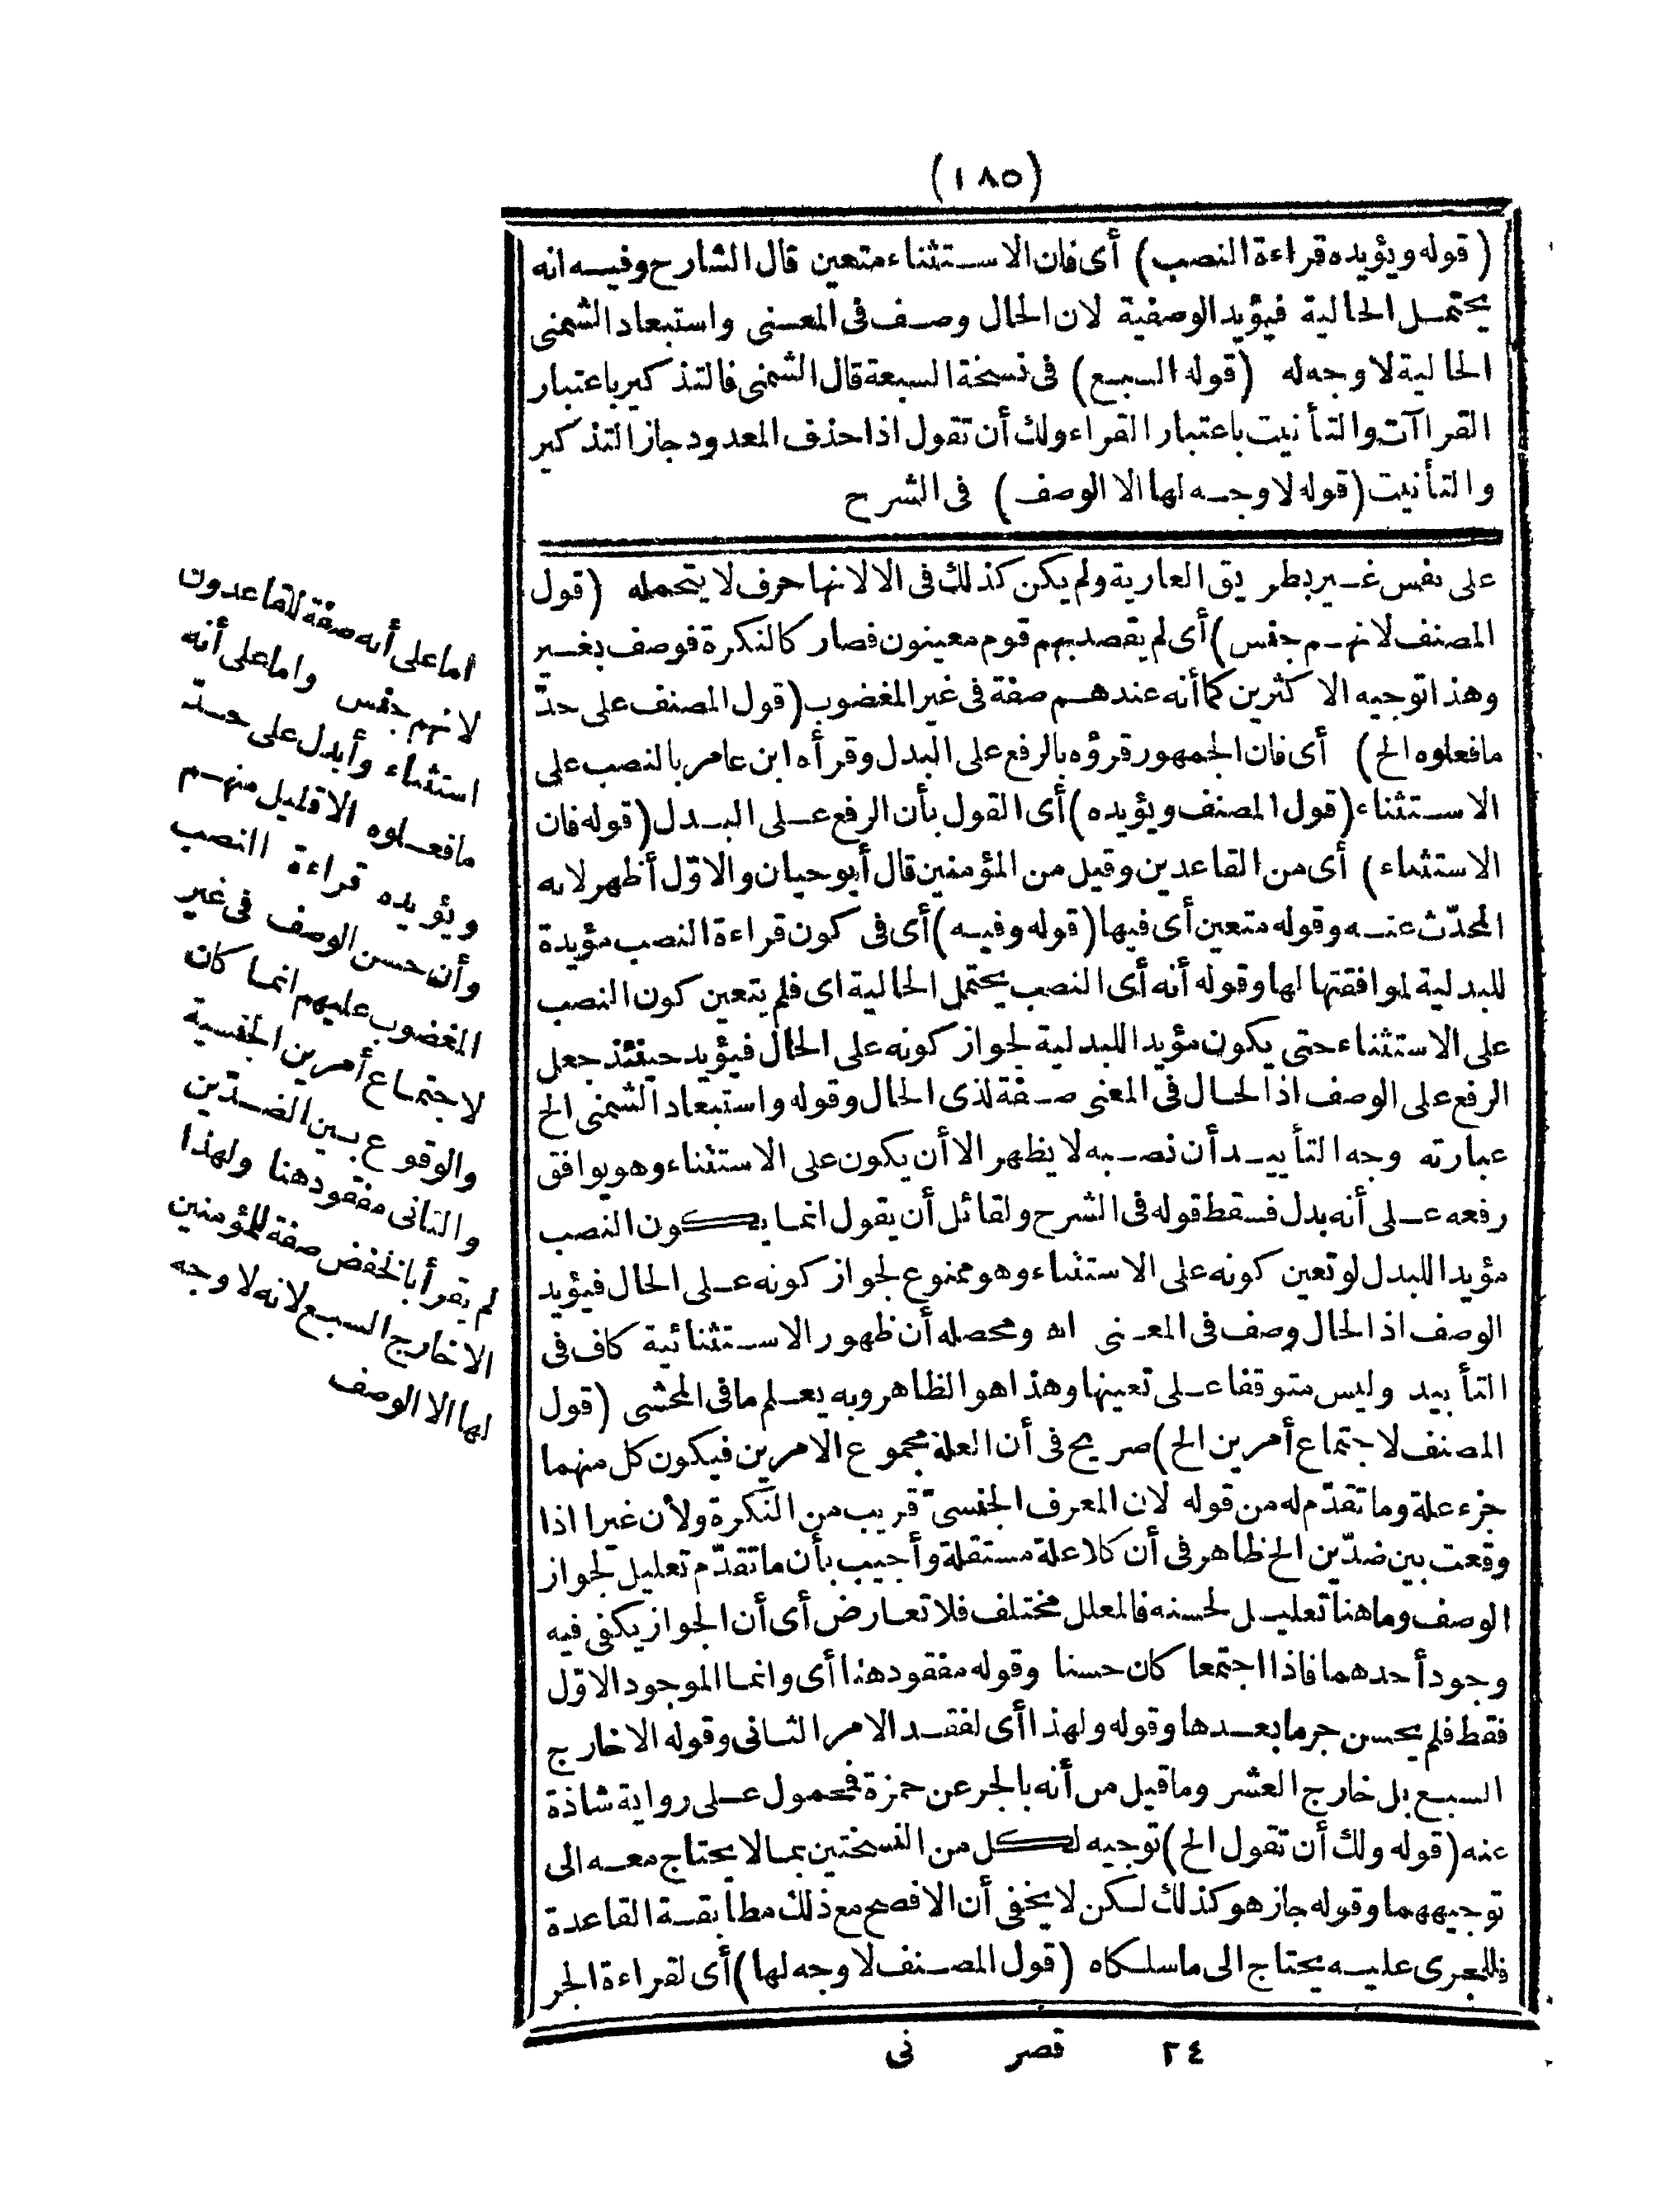 (١٨٥)
(قوله ويؤيده قراءة النصب) أى فان الاستثناء متعين قال الشارح وفيه انه
يحتمل الحالية فيؤيد الوصفية لان الحال وصف فى المعنى واستبعاد الشمنى
الحالية لا وجه له (قوله السبع) فى نسخة السبعة قال الشمنى فالتذكير باعتبار
القراآت والتأنيث باعتبار القراء ولك أن تقول اذا حذف المعدود جاز التذكير
والتأنيث (قوله لا وجه لها الا الوصف) فى الشرح
على نفس غير بطريق العارية ولم يكن كذلك فى الا لانها حرف لا يتحمله (قول
المصنف لانهم جنس) أى لم يقصد بهم قوم معينون فصار كالنكرة فوصف بغير
وهذا توجيه الاكثرين كما أنه عندهم صفة فى غير المغضوب (قول المصنف على حدّ
مافعلوه الخ) أى فان الجمهور قرؤه بالرفع على البدل وقرأه ابن عامر بالنصب على
الاستثناء (قول المصنف ويؤيده) أى القول بأن الرفع على البدل (قوله فان
الاستثناء) أى من القاعدين وقيل من المؤمنين قال أبوحيان والاوّل أظهر لانه
المحدّث عنه وقوله متعين أى فيها (قوله وفيه) أى فى كون قراءة النصب مؤيدة
للبدلية لموافقتها لها وقوله أنه أى النصب يحتمل الحالية اى فلم يتعين كون النصب
على الاستثناء حتى يكون مؤيدا للبدلية لجواز كونه على الحال فيؤيد حينئذ جعل
الرفع على الوصف اذ الحال فى المعنى صفة لذى الحال وقوله واستبعاد الشمنى الخ
عبارته وجه التأييد أن نصبه لا يظهر الا أن يكون على الاستثناء وهو يوافق
رفعه على أنه بدل فسقط قوله فى الشرح ولقائل أن يقول انما يكون النصب
مؤيدا للبدل لو تعين كونه على الاستثناء وهو ممنوع لجواز كونه على الحال فيؤيد
الوصف اذ الحال وصف فى المعنى اه ومحصله أن ظهور الاستثنائية كاف فى
التأييد وليس متوقفا على تعينها وهذا هو الظاهر وبه يعلم ما فى المحشى (قول
المصنف لاجتماع أمرين الخ) صريح فى أن العلة مجموع الامرين فيكون كل منهما
جزء علة وما تقدّم له من قوله لان المعرف الجنسىّ قريب من النكرة ولأن غيرا اذا
وقعت بين ضدّين الخ ظاهر فى أن كلا علة مستقلة وأجيب بأن ما تقدّم تعليل لجواز
الوصف وما هنا تعليل لحسنه فالمعلل مختلف فلا تعارض أى أن الجواز يكفى فيه
وجود أحدهما فاذا اجتمعا كان حسنا وقوله مفقود هنا أى وانما الموجود الاوّل
فقط فلم يحسن جر ما بعدها وقوله ولهذا أى لفقد الامر الثانى وقوله الا خارج
السبع بل خارج العشر وما قيل من أنه بالجر عن حمزة فمحمول على رواية شاذة
عنه (قوله ولك أن تقول الخ) توجيه لكل من النسختين بما لا يحتاج معه الى
توجيههما وقوله جاز هو كذلك لكن لا يخفى أن الافصح مع ذلك مطابقة القاعدة
فللجرى عليه يحتاج الى ما سلكاه (قول المصنف لا وجه لها) أى لقراءة الجر
اما على أنه صفة للقاعدون
لانهم جنس واما على أنه
استثناء وأبدل على حدّ
مافعلوه الا قليل منهم
ويؤيده قراءة النصب
وأن حسن الوصف فى غير
المغضوب عليهم انما كان
لاجتماع أمرين الجنسية
والوقوع بين الضدّين
والثانى مفقود هنا ولهذا
لم يقرأ بالخفض صفة للمؤمنين
الا خارج السبع لانه لا وجه
لها الا الوصف
٢٤ قصر نى